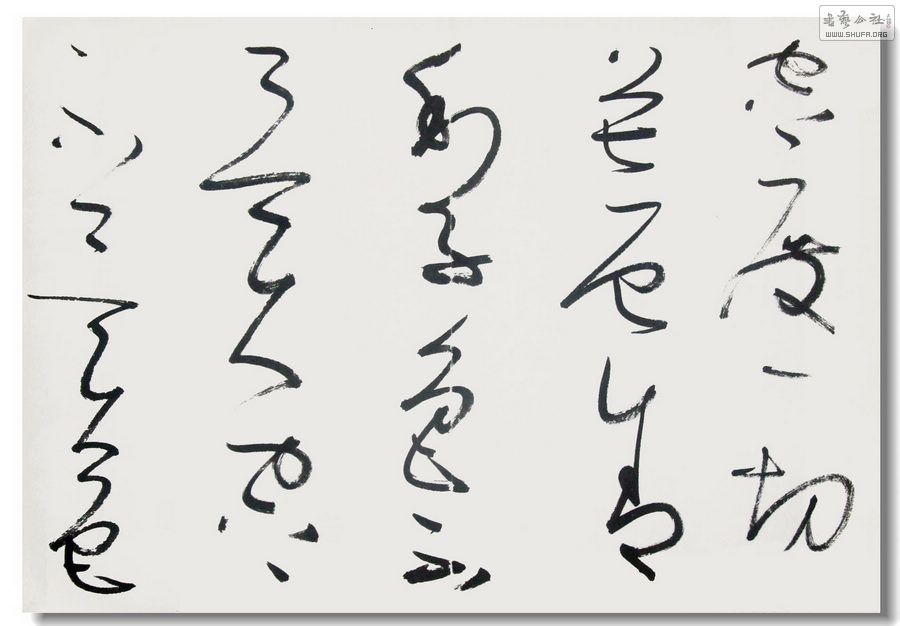 空度一切
苦厄舍
利子色不
異空々
不異色
書藝公社
WWW.SHUFA.ORG